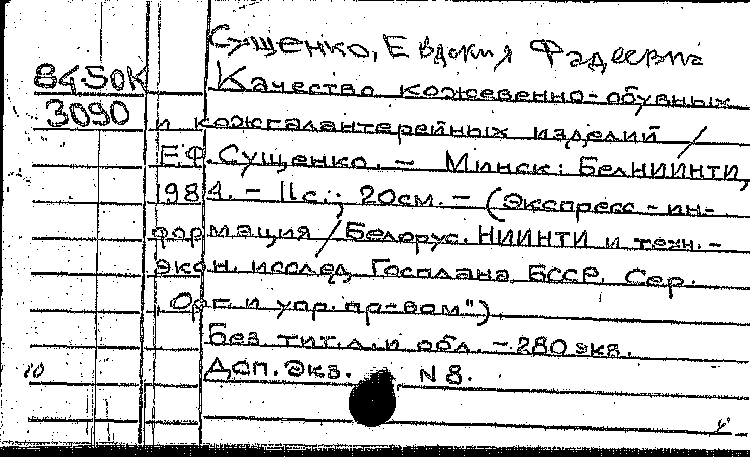 Сущенко, Евдокия Фадеевна
84.50К
Качество кожевенно-обувных
3090
и кожгалантерейных изделий /
Е.Ф. Сущенко. – Минск: БелНИИНТИ,
1984. – 11 с.; 20 см. – (Экспресс-ин-
формация / Белорус. НИИНТИ и техн.-
экон. исслед. Госплана БССР. Сер.
„Орг. и упр. пр-вом").
Без тит. л. и обл. – 280 экз.
10 Доп. экз. N 8.